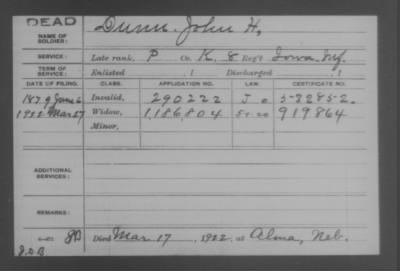 DEAD
NAME OF SOLDIER: Dunn, John H,
SERVICE: Late rank, P Co. K, 8 Reg't Iowa Inf.
TERM OF SERVICE: Enlisted , 1 Discharged , 1
DATE OF FILING. CLASS. APPLICATION NO. LAW. CERTIFICATE NO.
1879 June 6 Invalid, 290222 J 0 583852
1922 Mar 27 Widow, 1,186,804 5-1-20 919864
Minor,
ADDITIONAL SERVICES:
REMARKS:
Died Mar 17, 1922, at Alma, Neb.